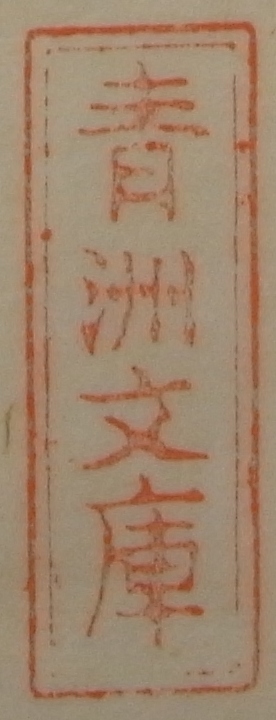 青洲文庫